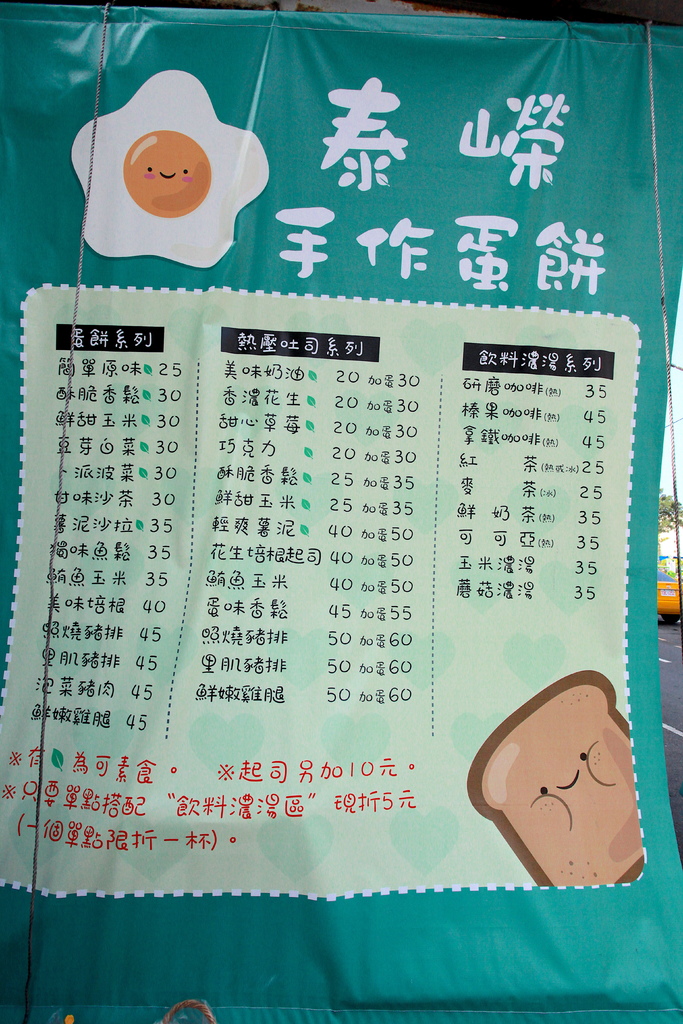 泰嶸
手作蛋餅
蛋餅系列
簡單原味 25
酥脆香鬆 30
鮮甜玉米 30
豆芽白菜 30
卜派菠菜 30
甘味沙茶 30
薯泥沙拉 35
獨味魚鬆 35
鮪魚玉米 35
美味培根 40
照燒豬排 45
里肌豬排 45
泡菜豬肉 45
鮮嫩雞腿 45
熱壓吐司系列
美味奶油 20 加蛋30
香濃花生 20 加蛋30
甜心草莓 20 加蛋30
巧克力 20 加蛋30
酥脆香鬆 25 加蛋35
鮮甜玉米 25 加蛋35
輕爽薯泥 40 加蛋50
花生培根起司 40 加蛋50
鮪魚玉米 40 加蛋50
蛋味香鬆 45 加蛋55
照燒豬排 50 加蛋60
里肌豬排 50 加蛋60
鮮嫩雞腿 50 加蛋60
飲料濃湯系列
研磨咖啡(熱) 35
榛果咖啡(熱) 45
拿鐵咖啡(熱) 45
紅茶(熱或冰) 25
麥茶(冰) 25
鮮奶茶(熱) 35
可可亞(熱) 35
玉米濃湯 35
蘑菇濃湯 35
※有 為可素食。 ※起司另加10元。
※只要單點搭配 “飲料濃湯區” 現折5元
(一個單點限折一杯)。